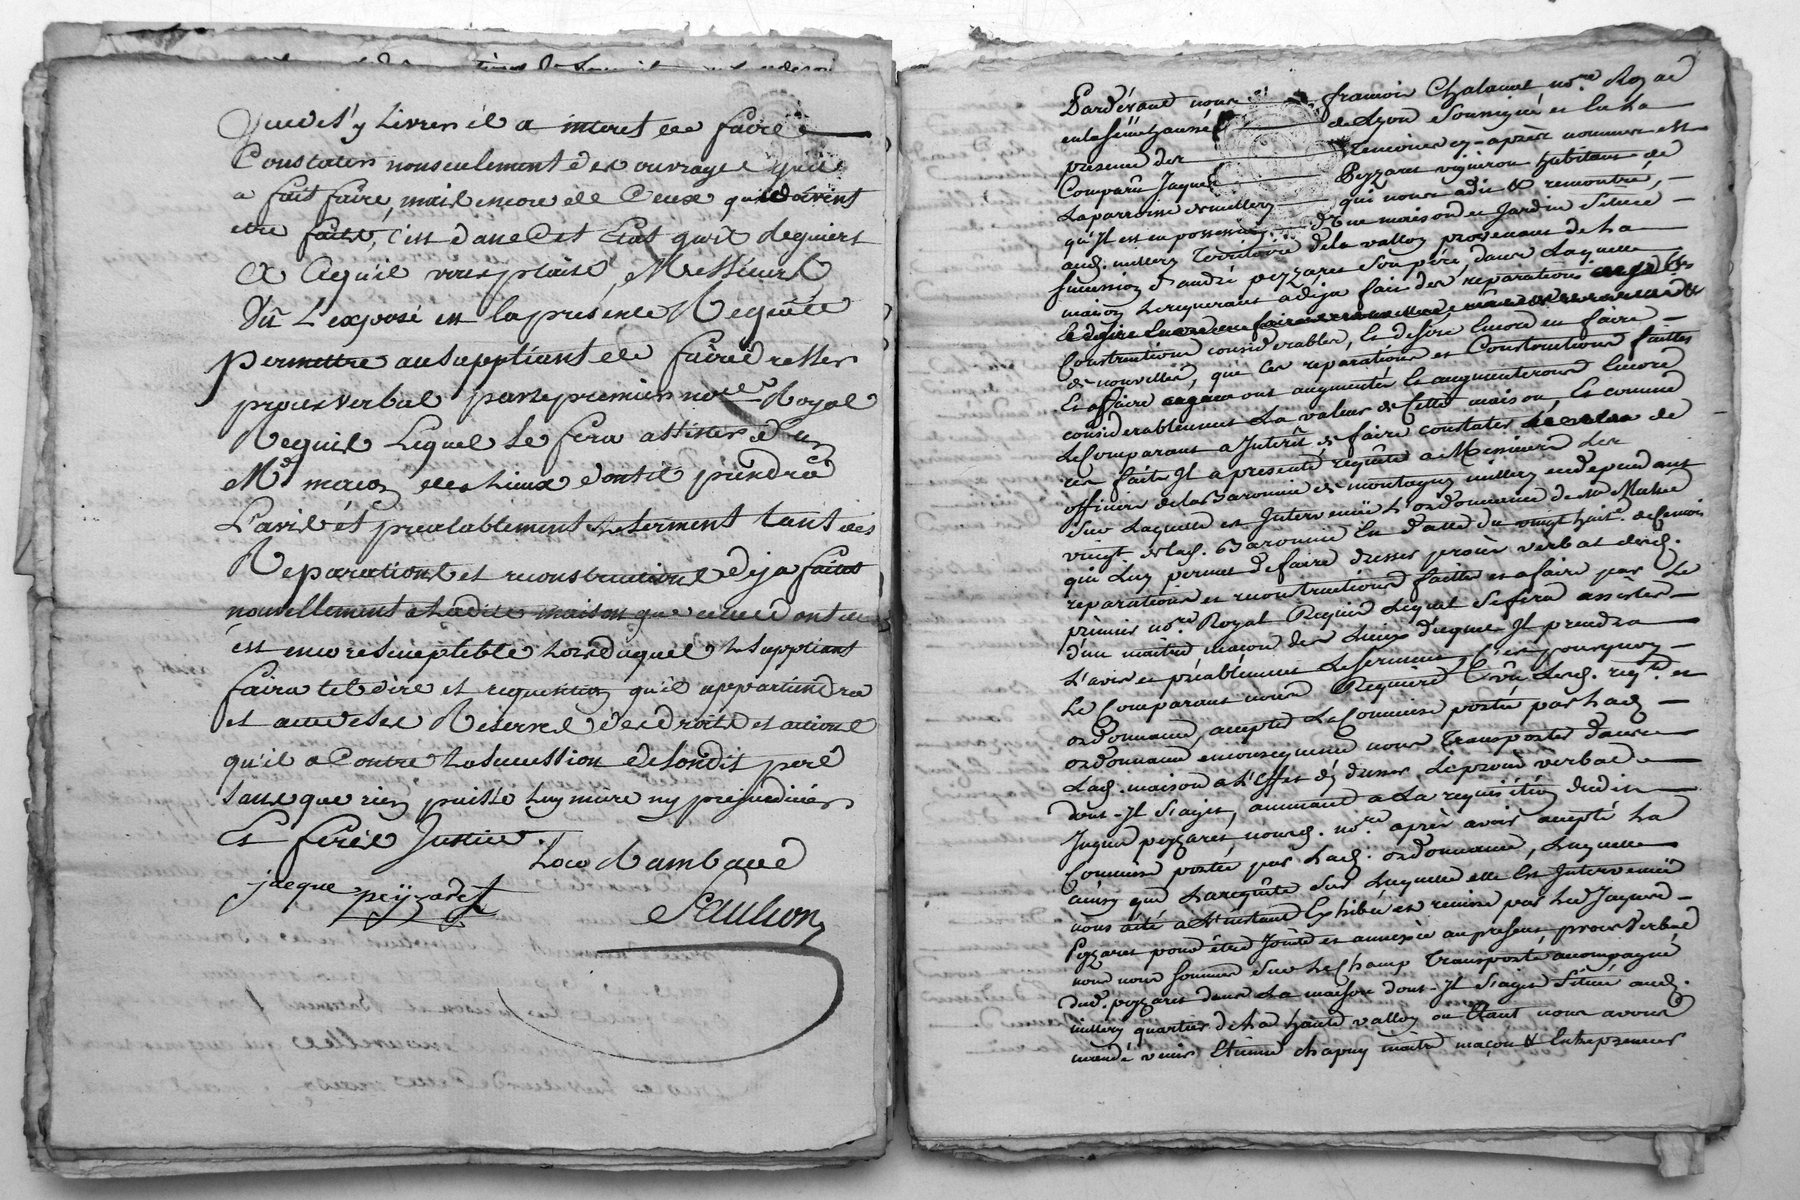 Que des'y Livrer il a interet de faire
Constater nonseulement des ouvrages qu'il
a fait faire, mais encore de Ceux qui doivent
etre faits, c'est dans Cet Etat qu'il Requiert
A Cequ'il vous plaise, Messieurs
Vû L'exposé en la présente Requête
permettre ausuppliant de faire dresser
procès verbal parle premier no.re Royal
Requis Lequel Se fera assister d'un
M.e macon des Lieux dont il prendra
L'avis et prealablement le serment tant des
Reparations et reconstructions deja faites
nouvellement a Ladite maison que celles dont elle
est encore suceptible Lors duquel Le suppliant
faira tel dire et requisition qu'il appartiendra
et avec les Reserves des droits et actions
qu'il a Contre La sucession de sondit pere
sans que rien puisse luy nuire ny prejudicier
Et ferés Justice.
Loco Rambaud
jacque peyzaret
Saulnon
Pardevant nous françois Chalamel no.re Royal
enlaSenechaussée de Lyon Soussigné et en la
présence des temoins cy-après nommés est
Comparû Jaques Peyzaret vigneron habitant de
Laparroisse de millery qui nous a dit & remontré, -
qu'Il est en possession d'une maison et Jardin Situés -
aud. millery Territoire de la valloy provenant de La
succession d'andré peyzaret Son père, dans Laquelle
maison Le requerant a déja fait des reparations
Constructions considerables, Et desire Encore en faire -
de nouvelles, que Ces reparations et Constructions faittes
Et affaire ont augmenté Et augmenteront Encore
considerablement La valeur de Cette maison, Et comme
Le Comparant a Intérêt de faire constater de
ces faits Il a presenté requête a Messieurs Les
officiers de la Baronnie de montagny millery endependant
Sur Laquelle est Intervenüe L'ordonnance de
vingt de lad. Baronnie En datte du vingt huit.e de Ce mois
qui Luy permet de faire dresser procès verbal desd.
reparations et reconstructions faittes et a faire par Le
premier no.re Royal Requis Lequel Se fera assister
d'un maitre maçon des Lieux duquel Il prendra
L'avis et préablement Le Serment, C'est pourquoy -
Le Comparant nous Requiert Vû Lesd. req.te et
ordonnance, accepter La Commission portée par Lad. -
ordonnance en consequence nous Transporter dans
Lad. maison a L'Effet d'y dresser Le procès verbal
dont-Il S'agit, acummant a La requisition dudit
Jaques peyzaret, nousd. no.re après avoir accepté La
Commission portée par Lad. ordonnance, Laquelle
ainsy que La requête Sur Laquelle elle Est Intervenüe
nous a été a L'instant Exhibée et remise par Led Jaques -
Peyzaret pour être Jointe et annexée au présent, procès verbal
nous nous sommes Sur Le Champ Transporté accompagné
dud. peyzaret dans La maison dont-Il S'agit Située aud.
millery quartier de La haute valloy ou Etant nous avons
mandé venir Etienne chapuy maître maçon & Entrepreneur